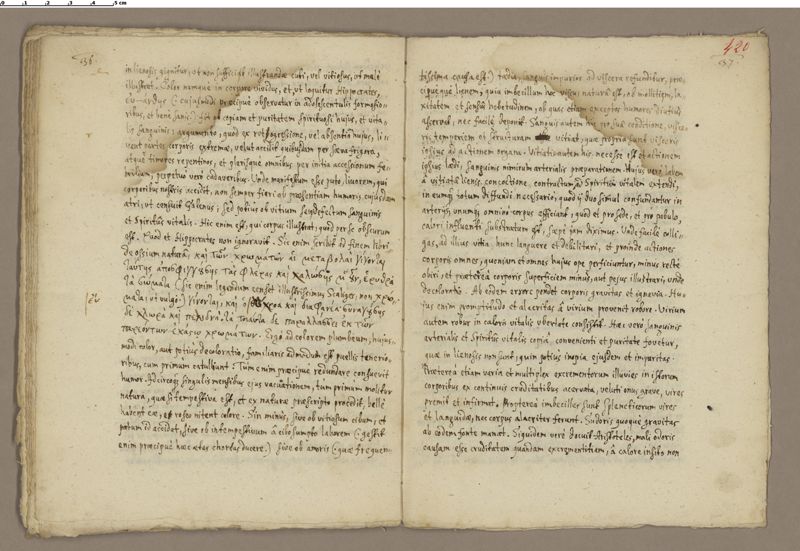 36.
in lienosis gignitur, ut non sufficiat illustrandæ cuti, vel vitiosus, ut malè
illustret. Color namque in corpore vividus, et, ut loquitur Hippocrates,
præcipuè observatur in adolescentulis formosio-
ribus, et benè sanis copiam et puritatem spirituosi huius, et vita-
lis sanguinis argumento, quod ex retrogressione, vel absentia huius, li-
vent partes corporis extremæ, velut accidit quibusdam per sæva frigora,
atque timores repentinos, et plerisque omnibus per initia accessionum fe-
brilium, perpetuò verò cadaveribus. Unde manifestum esse puto, livorem, qui
corporibus nostris accidit, non semper fieri ob præsentiam humoris cuiusdam
atri, ut censuit Galenus; sed potius ob vitium seu defectum sanguinis
et spiritus vitalis. Hic enim est, qui corpus illustrat, quod per se obscurum
est. Quod et Hippocrates non ignoravit. Sic enim scribit ad finem libri
de ossium natura, καὶ τῶν χρωμάτων αἱ μεταβολαὶ γίνονται,
ταύτης τὰς φλέβας καὶ
(Sic enim legendum censet illustrissimus Scaliger, non
ut vulgò) γίνονται, καὶ
δὲ χλωρὰ καὶ πελιδνὰ. τὰ
χρωμάτων. Ergò ad colorem plumbeum, huius-
modi color, aut potius decoloratio, familiaris admodum est puellis tenerio-
ribus, cum primum catuliunt: Tum enim præcipuè redundare consuevit
humor. Ad eius singulis mensibus eius vacuationem, tum primum molitur
natura, quæ si tempestiva est, et ex naturæ præscripto procedit, bellè
habent eæ, et roseo nitent colore. Sin minus, sive ob vitiosum cibum, et
potum id accidat, sive ob intempestivum à cibo sumpto laborem (: gestit
enim præcipuè hæc ætas choreas ducere.) sive ob amoris (: quæ frequen-
420
37.
tissima causa est.) tædia, sanguis impurior ad viscera refunditur, præ-
cipuè quæ lienem, quia imbecillum hoc viscus naturâ est, ob mollitiem, la-
xitatem et sensus hebetudinem, ob quas etiam exceptos humores diutius
asservat, nec facilè deponit. Sanguis autem hic pro suæ conditione, visce-
ris temperiem et structuram vitiat, quæ propria sunt visceris
ipsius ad actionem organa. Vitiatis autem his necesse est et actionem
ipsius lædi, sanguinis nimirum arterialis præparationem. Huius verò labem
à vitiata lienis concoctione, contractam ad spiritum vitalem extendi,
in eumque totum diffundi necessario; quod ij duo simul confundantur in
arterijs, unumque omninò corpus efficiant, quod et pro sede, et pro pabulo,
calori influenti substratum est, sæpè jam diximus. Unde facilè colli-
gas, ad illius vitia, hunc languere et debilitari, et proinde actiones
corporis omnes, quoniam et omnes huius ope perficiuntur, minus rectè
obiri, et prætereà corporis superficiem minus, aut peius illustrari, undè
decoloratio. Ab eodem errore pendet corporis gravitas et ignavia. Hu-
jus enim promptitudo et alacritas à virium provenit robore. Virium
autem robur in caloris vitalis ubertate consistit. Hæc verò, sanguinis
arterialis et spiritus vitalis copiâ, convenienti et puritate fovetur,
quæ in lienosis non sunt, quin potius inopia ejusdem et impuritas.
Prætereà etiam varia et multiplex excrementorum illuvies in istorum
corporibus ex continuis cruditatibus acervata, veluti onus grave, vires
premit et infirmat. Propterea imbecilles sunt spleneticorum vires
et languidæ, nec corpus alacriter ferunt. Sudoris quoque gravitas
ab eodem fonte manat. Siquidem verè docuit Aristoteles, mali odoris
causam esse cruditatem quandam excrementitiam, à calore insito non